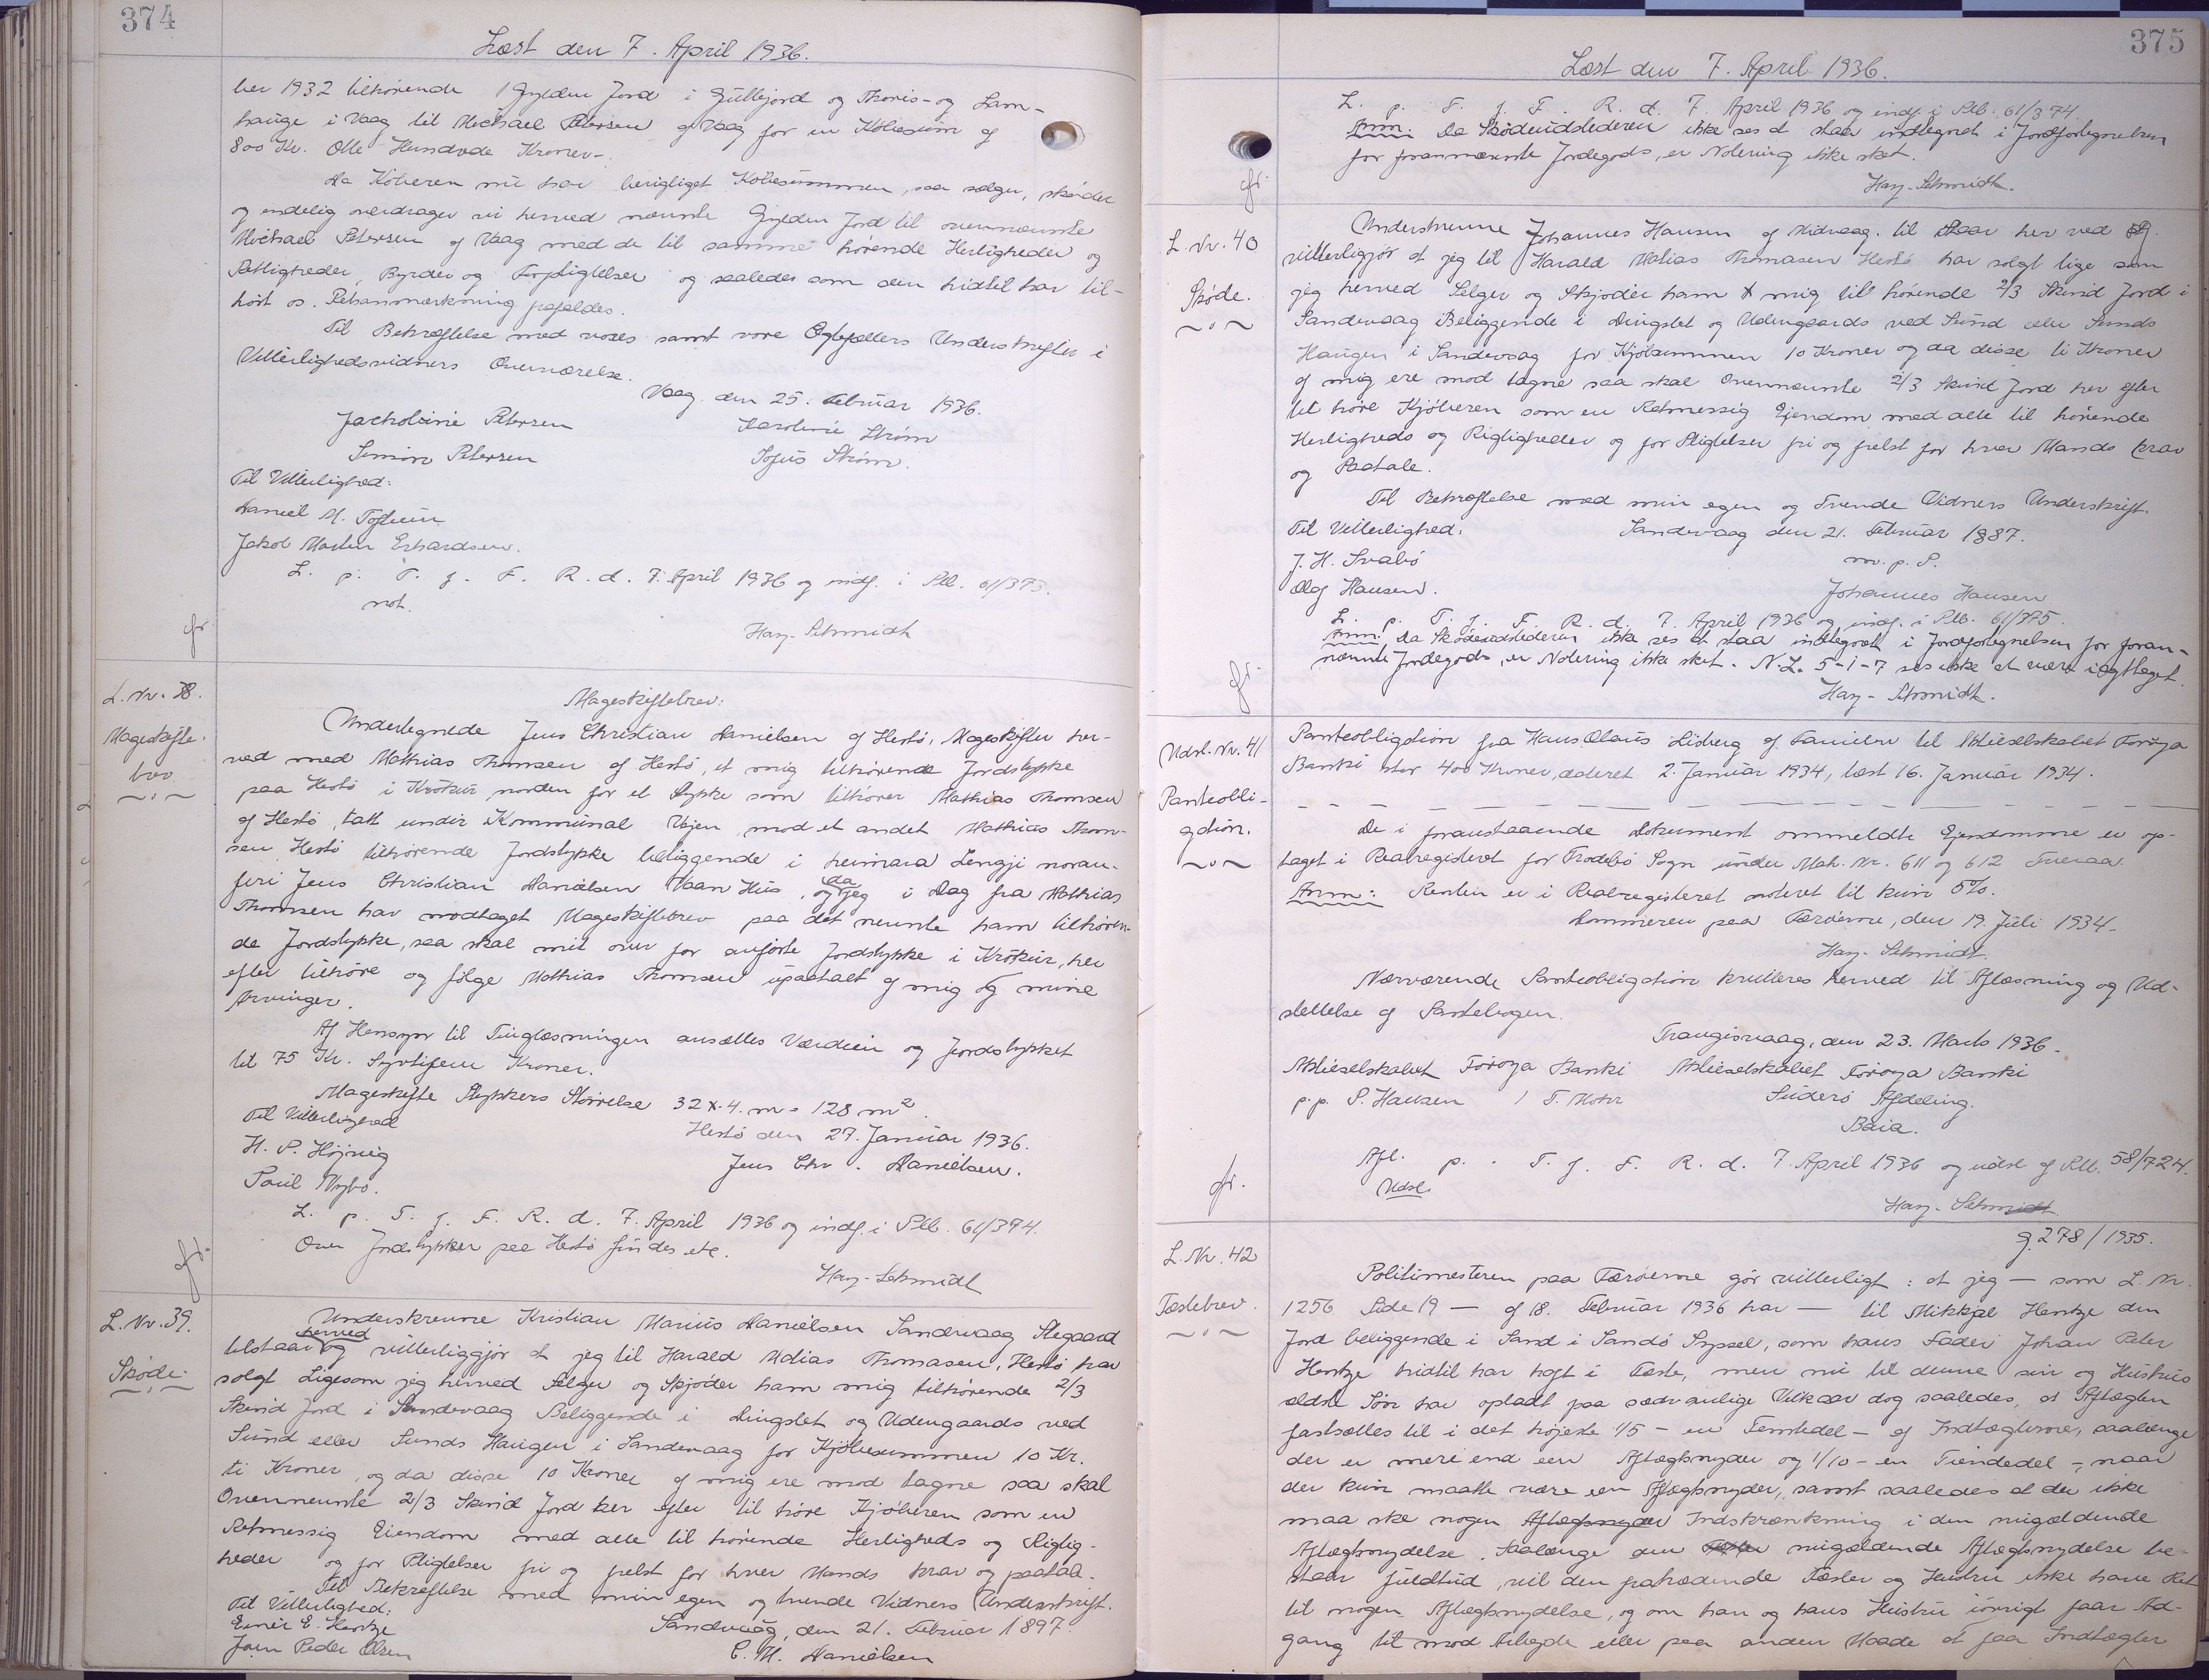 374
Læst den 7. April 1936.
ber 1932 tilhörende 1 Gylden Jord i Gullijord og Thoris- og Lam-
hauge i Vaag til Michael Petersen af Vaag for en Köbesum af
800 Kr. Otte Hundrede Kroner-.
Da Köberen nu har berigtiget Köbesummen, saa sælger, skøder
og endelig overdrager vi herved nævnte Gylden Jord til ovennævnte
Michael Petersen af Vaag med de til samme hörende Herligheder og
Rettigheder, Byrder og Forpligtelser og saaledes som den hidtil har til-
hört os. Retsanmærkning frafaldes.
Til Bekræftelse med vores samt vore Ægtefællers Underskrifter i
Vitterlighedsvidners Overværelse.
Vaag den 25. Februar 1936.
Jacholine Petersen Karoline Ström
Simon Petersen Sofus Ström.
Til Vitterlighed:
Daniel M. Toftum
Jakob Martin Erhardsen.
L. p. T. f. F. R. d. 7. April 1936 og indf. i Ptb. 61/373.
not.
Hay-Schmidt
L. Nr. 38.
Mageskifte-
brev
Mageskiftebrev:
Undertegnede Jens Christian Danielsen af Hestö, Mageskifter her-
ved med Mathias Thomsen af Hestö, et mig tilhörende Jordstykke
paa Hestö i Krökur norden for et Stykke som tilhörer Mathias Thomsen
af Hestö, tatt undir Kommunal Vejen, mod et andet Mathias Thom-
sen Hestö tilhörende Jordstykke beliggende i heimara Lengji noran-
firi Jens Christian Danielsen Vaan Hus, og da jeg i Dag fra Mathias
Thomsen har modtaget Mageskiftebrev paa det nevnte ham tilhören-
de Jordstykke, saa skal mit over for anförte Jordstykke i Krökur, her
efter tilhöre og fölge Mathias Thomsen upaatalt af mig og mine
Arvinger.
Af Hensyn til Tinglæsningen ansættes Værdien og Jordstykket
til 75 Kr. Syvtifem Kroner.
Mageskifte Stykkers Störrelse 32 x 4. m = 128 m²
Til Vitterlighed Hestö den 27. Januar 1936.
H. P. Höjvig Jens Chr. Danielsen.
Poul Nybo.
L. p. T. f. F. R. d. 7. April 1936 og indf. i Ptb. 61/374.
Over Jordstykker paa Hestö findes etc.
Hay-Schmidt
L. Nr. 39.
Skøde:
Underskrevne Kristian Marius Danielsen Sandevaag Stegaard
tilstaar herved og vitterliggjör at jeg til Harald Mdias Thomasen, Hestö har
solgt Ligesom jeg herved Selger og Skjøder ham mig tilhörende 2/3
Skind Jord i Sandevaag Beliggende i Dingslet og Udengaards ved
Sund eller Sunds Haugen i Sandevaag for Kjöbesummen 10 Kr.
ti Kroner, og da disse 10 Kroner af mig ere mod tagne saa skal
Ovennevnte 2/3 Skind Jord her efter til höre Kjöberen som en
Retmessig Eiendom med alle til hörende Herligheds og Riglig-
heder og for Pligtelser fri og frelst for hver Mands krav og paatale.
Til Bekræftelse med min egen og tvende Vidners Underskrift.
Til Vitterlighed: Sandevaag, den 21. Februar 1897.
Einer E. Hentze C. M. Danielsen
Joen Peder Olsen
375
Læst den 7. April 1936.
L. p. T. f. F. R. d. 7. April 1936 og indf. i Ptb. 61/374.
Anm: Da Skødeudstederen ikke ses at staa indtegnet i Jordfortegnelsen
for forannævnte Jordegods, er Notering ikke sket.
Hay-Schmidt.
L. Nr. 40
Skøde.
Underskrevne Johannes Hansen af Midvaag. til Staar her ved og
vitterligjör at jeg til Harald Mdias Thomasen Hestö har solgt lige som
jeg herved Selger og Skjoder ham mig til hörende 2/3 Skind Jord i
Sandevaag Beliggende i Dingslet og Udengaards ved Sund eller Sunds
Haugen i Sandevaag for Kjöbsummen 10 Kroner og da disse ti Kroner
af mig ere mod tagne saa skal Ovennevnte 2/3 Skind Jord her efter
til höre Kjöberen som en Retmessig Ejendom med alle til hörende
Herligheds og Rigligheder og for Pligtelser fri og frelst for hver Mands krav
og Paatale.
Til Bekræftelse med min egen og Tvende Vidners Underskrift.
Til Vitterlighed: Sandevaag den 21. Februar 1887.
J. H. Svabö m. p. P.
Olaf Hansen. Johannes Hansen
L. p. T. f. F. R. d. 7. April 1936 og indf. i Ptb. 61/375.
Anm: Da Skødeudstederen ikke ses at staa indtegnet i Jordfortegnelsen for foran-
nævnte Jordegods, er Notering ikke sket. N.L. 5-1-7 ses ikke at være iagttaget.
Hay-Schmidt.
Udsl. Nr. 41
Panteobli-
gation.
Panteobligation fra Hans Olaus Lidberg af Famien til Aktieselskabet Foröya
Banki stor 400 Kroner, dateret 2. Januar 1934, læst 16. Januar 1934.
De i foranstaaende Dokument ommeldte Ejendomme er op-
taget i Realregisteret for Frodebö Sogn under Matr. Nr. 611 og 612 Tveraa.
Anm: Renten er i Realregisteret noteret til kun 5%.
Dommeren paa Færöerne, den 19. Juli 1934.
Hay-Schmidt.
Nærværende Panteobligation kvitteres herved til Aflæsning og Ud-
slettelse af Pantebogen.
Trangisvaag, den 23. Marts 1936.
Aktieselskabet Föroya Banki Aktieselskabet Föroya Banki
p.p. P. Hansen / T. Mohr Suderö Afdeling.
Baia.
Afl. p. T. f. F. R. d. 7. April 1936 og udsl. af Ptb. 58/724.
Udsl.
Hay-Schmidt
g. 278/1935.
L. Nr. 42
Fæstebrev.
Politimesteren paa Færöerne gör vitterligt: at jeg — som L. Nr.
1256 Side 19 — af 18. Februar 1936 har — til Mikkjal Hentze den
Jord beliggende i Sand i Sandö Syssel, som hans Fader Johan Peter
Hentze hidtil har haft i Fæste, men nu til denne sin og Hustrus
ældste Sön har opladt paa sædvanlige Vilkaar dog saaledes, at Aftægten
fastsættes til i det höjeste 1/5 - en Femtedel - af Indtægterne, saalænge
der er mere end een Aftægtsnyder og 1/10 - en Tiendedel -, naar
der kun maatte være een Aftægtsnyder, samt saaledes at der ikke
maa ske nogen Aftægtsnyder Indskrænkning i den nugældende
Aftægtsnydelse. Saalænge den nugældende Aftægtsnydelse be-
staar fuldtud, vil den fratrædende Fæster og Hustru ikke have Ret
til nogen Aftægtsnydelse, og om han og hans Hustru iövrigt faar Ad-
gang til mod Arbejde eller paa anden Maade at faa Indtægter